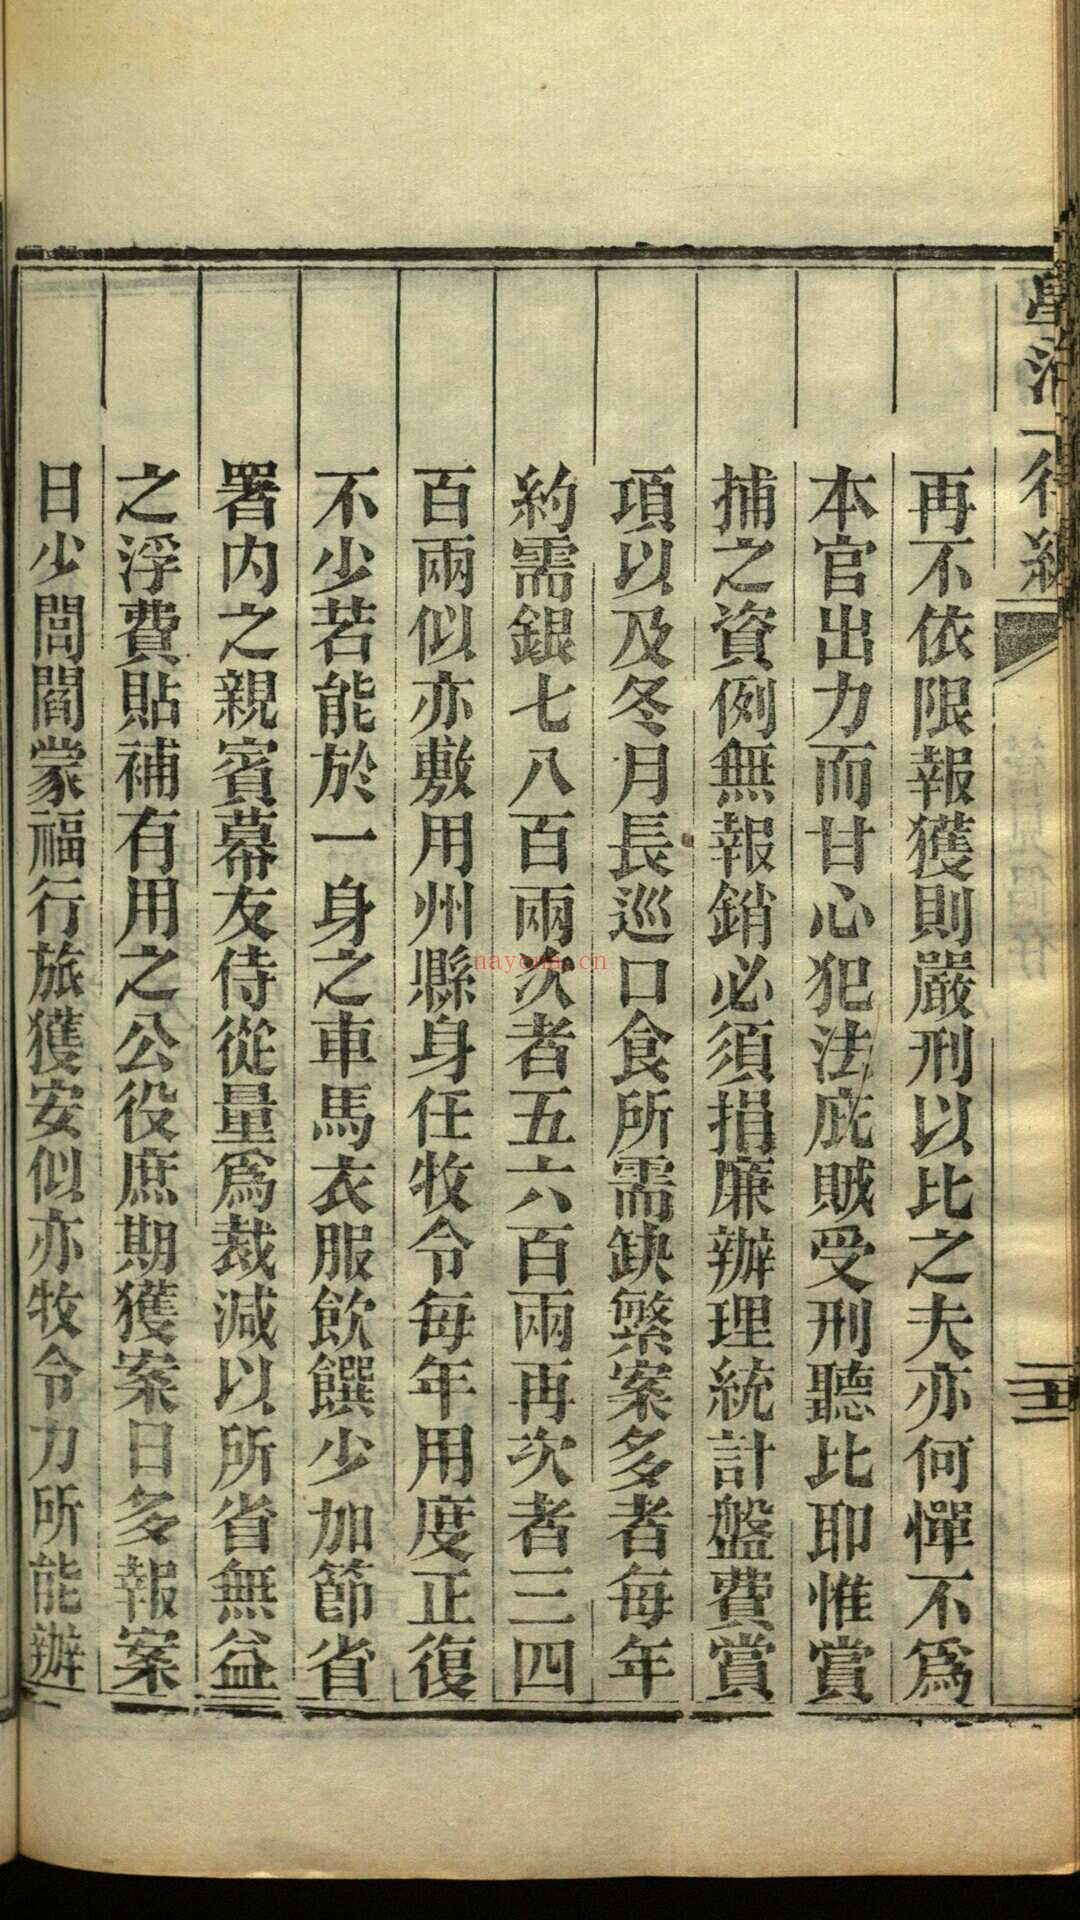 再不依限報獲則嚴刑以比之夫亦何憚不爲
本官出力而甘心犯法庇賊受刑聽比耶惟賞
捕之資例無報銷必須捐廉辦理統計盤費賞
項以及冬月長巡口食所需缺繁案多者每年
約需銀七八百兩次者五六百兩再次者三四
百兩似亦敷用州縣身任牧令每年用度正復
不少若能於一身之車馬衣服飲饌少加節省
署內之親賓幕友侍從量爲裁減以所省無益
之浮費貼補有用之公役庶期獲案日多報案
日少閭閻蒙福行旅獲安似亦牧令力所能辦
nayona.cn